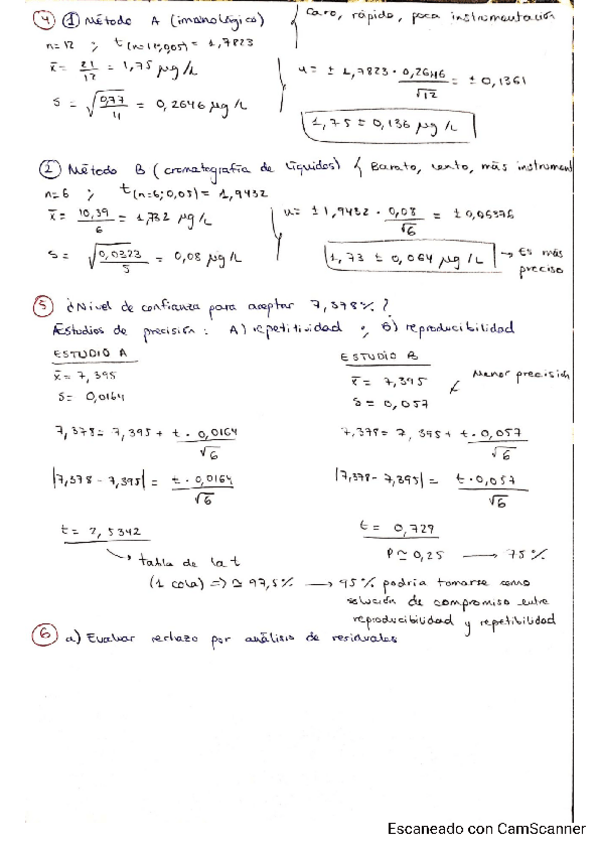 4) ① Método A (inmunológico) { Caro, rápido, poca instrumentación
n=12 ; t(n=12; 0,05) = 1,7823
x̄ = 21/12 = 1,75 µg/L
u = ± 1,7823 · 0,2646/√12 = ± 0,1361
s = √(0,77/11) = 0,2646 µg/L
1,75 ± 0,136 µg/L
② Método B (cromatografía de líquidos) { Barato, lento, más instrument
n=6 ; t(n=6; 0,05) = 1,9432
x̄ = 10,39/6 = 1,732 µg/L
u = ± 1,9432 · 0,08/√6 = ± 0,06376
s = √(0,0323/5) = 0,08 µg/L
1,73 ± 0,064 µg/L → Es más preciso
5) ¿Nivel de confianza para aceptar 7,378%?
Estudios de precisión: A) repetitividad ; B) reproducibilidad
ESTUDIO A
x̄ = 7,395
s = 0,0164
7,378 = 7,395 + t · 0,0164/√6
|7,378 - 7,395| = t · 0,0164/√6
t = 2,5392
tabla de la t
(1 cola) => ≅ 97,5%
ESTUDIO B
x̄ = 7,395
s = 0,057
Menor precisión
7,378 = 7,395 + t · 0,057/√6
|7,378 - 7,395| = t · 0,057/√6
t = 0,729
P ≃ 0,25 → 75%
→ 95% podría tomarse como
solución de compromiso entre
reproducibilidad y repetibilidad
6) a) Evaluar rechazo por análisis de residuales
Escaneado con CamScanner